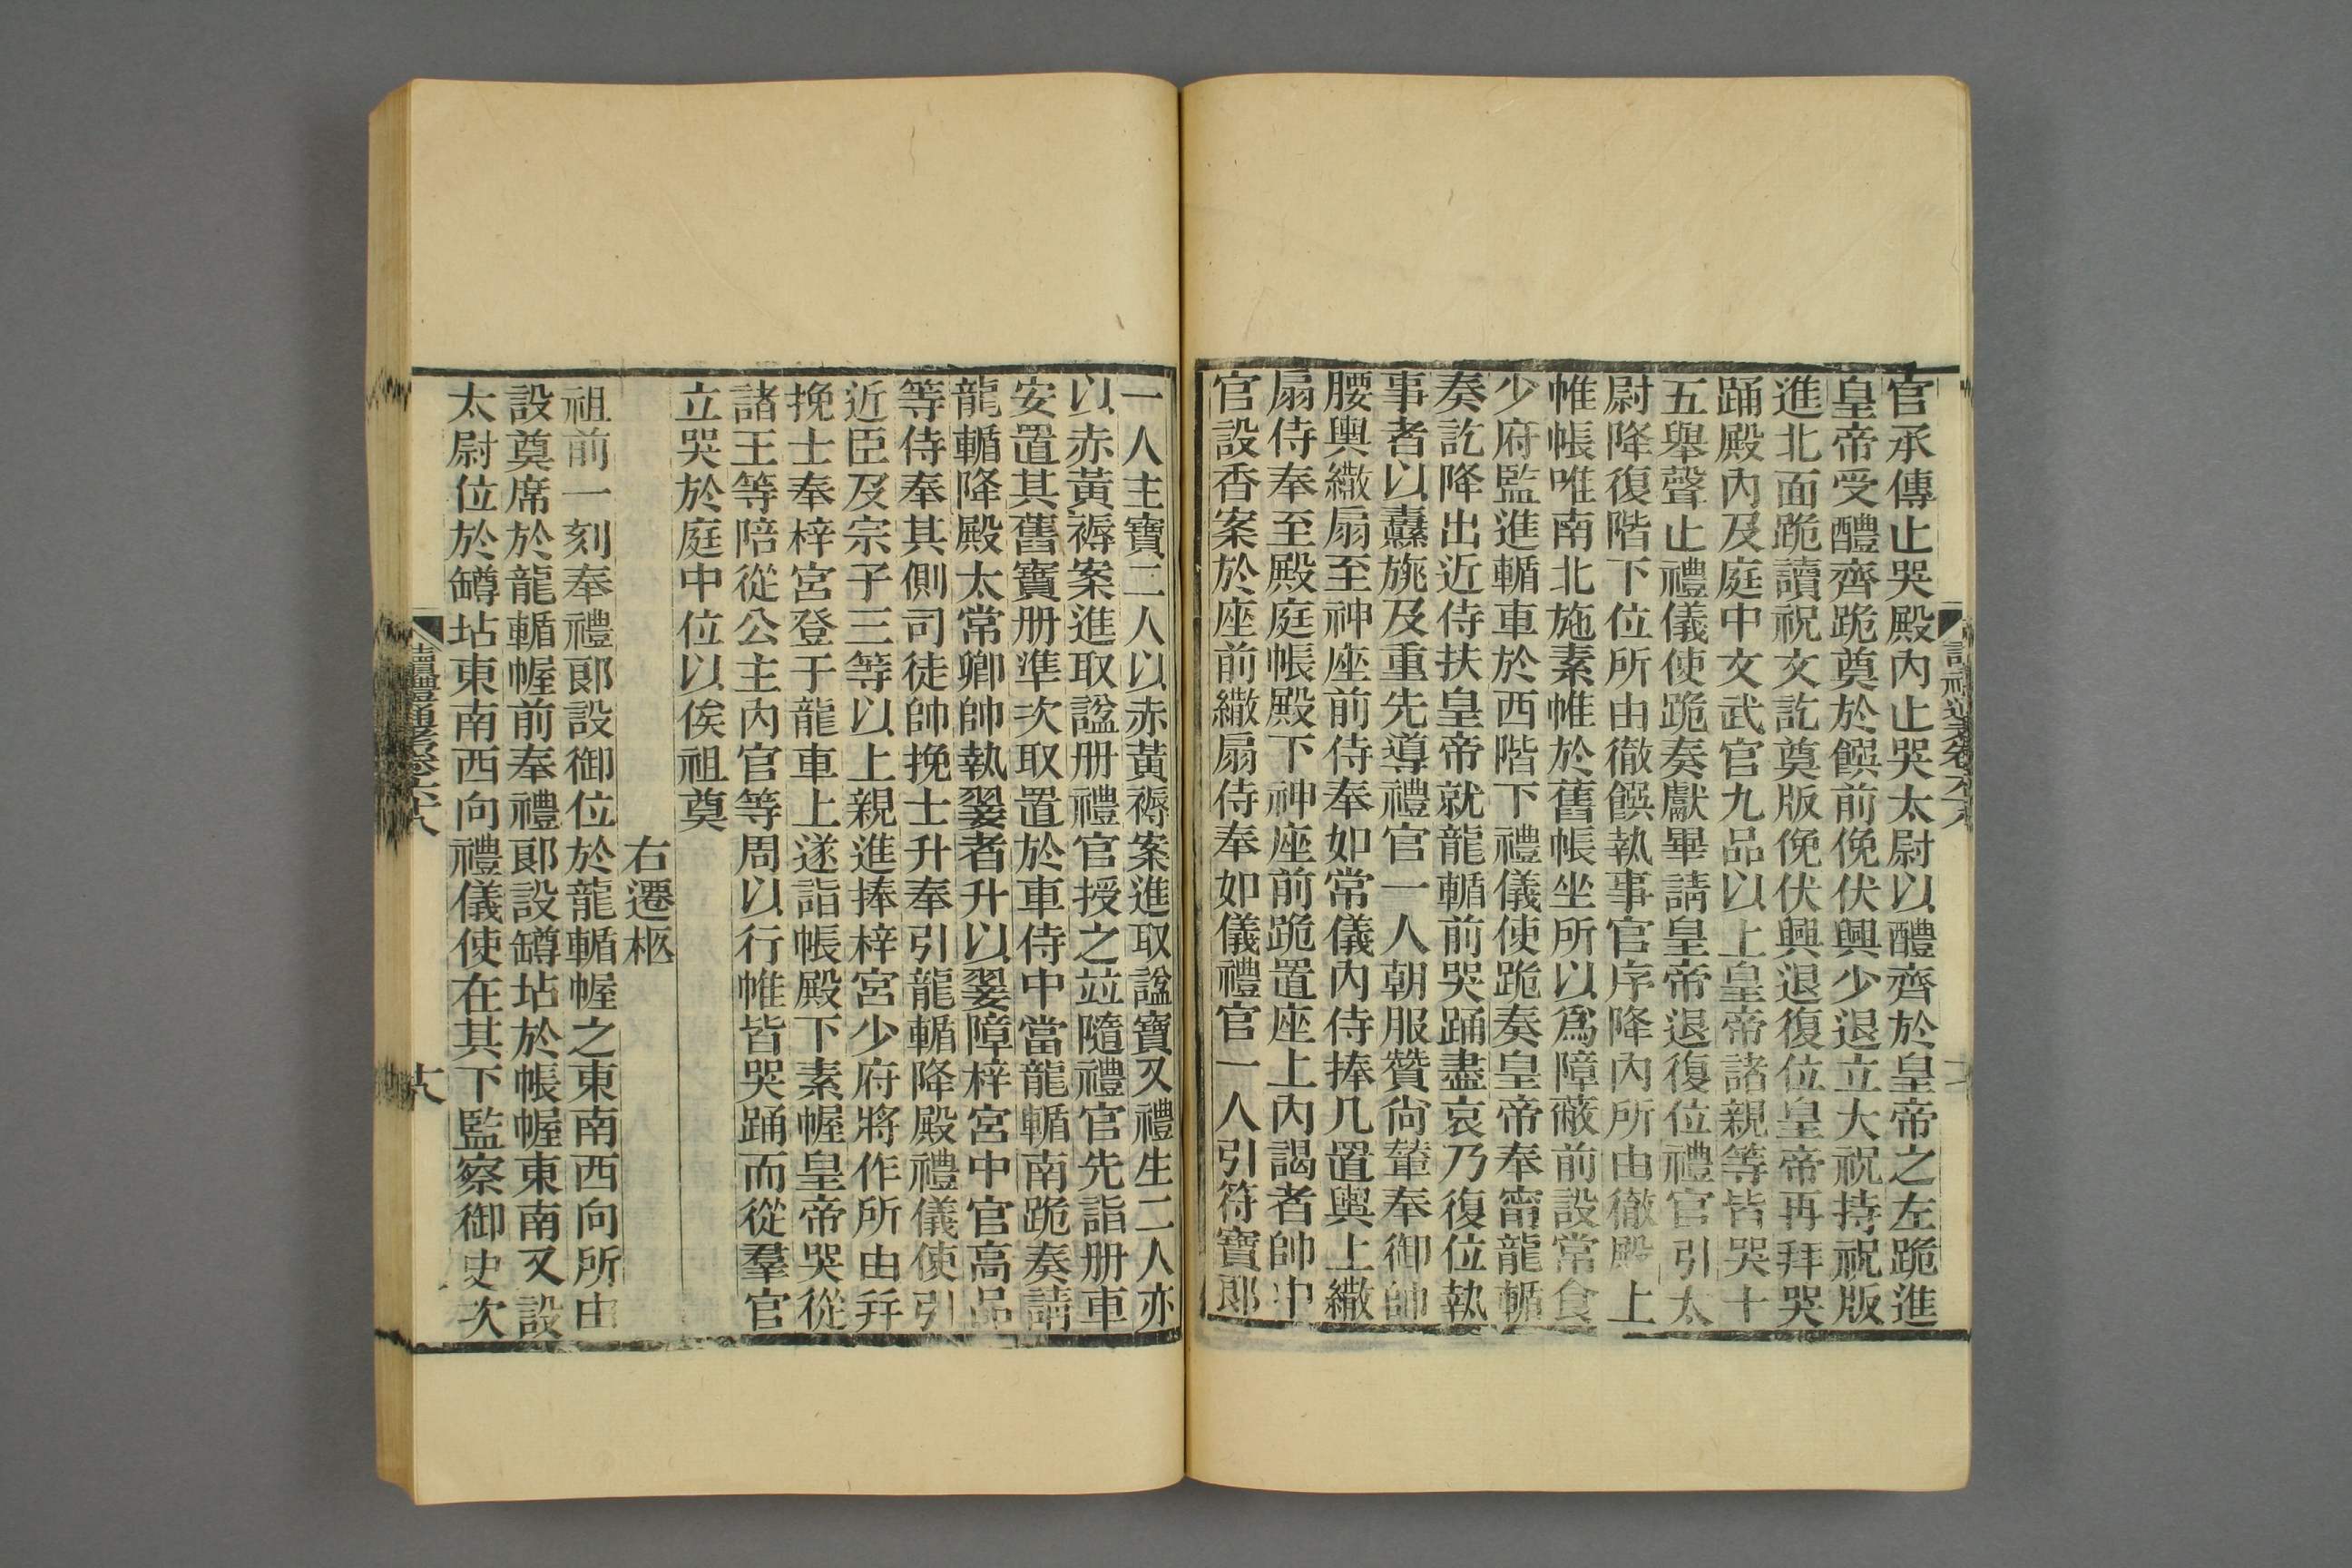 官承傳止哭殿內止哭太尉以醴齊於皇帝之左跪進
皇帝受醴齊跪奠於饌前俛伏興少退立大祝持祝版
進北面跪讀祝文訖奠版俛伏興退復位皇帝再拜哭
踊殿內及庭中文武官九品以上皇帝諸親等皆哭十
五舉聲止禮儀使跪奏獻畢請皇帝退復位禮官引太
尉降復階下位所由徹饌執事官序降內所由徹殿上
帷帳唯南北施素帷於舊帳坐所以爲障蔽前設常食
少府監進輴車於西階下禮儀使跪奏皇帝奉甯龍輴
奏訖降出近侍扶皇帝就龍輴前哭踊盡哀乃復位執
事者以纛旐及重先導禮官一人朝服贊尙輦奉御帥
腰輿繖扇至神座前侍奉如常儀內侍捧几置輿上繖
扇侍奉至殿庭帳殿下神座前跪置座上內謁者帥中
官設香案於座前繖扇侍奉如儀禮官一人引符寶郞
一人主寶二人以赤黃褥案進取諡寶又禮生二人亦
以赤黃褥案進取諡册禮官授之竝隨禮官先詣册車
安置其舊寶册準次取置於車侍中當龍輴南跪奏請
龍輴降殿太常卿帥執翣者升以翣障梓宮中官高品
等侍奉其側司徒帥挽士升奉引龍輴降殿禮儀使引
近臣及宗子三等以上親進捧梓宮少府將作所由幷
挽士奉梓宮登于龍車上遂詣帳殿下素幄皇帝哭從
諸王等陪從公主內官等周以行帷皆哭踊而從羣官
立哭於庭中位以俟祖奠
右遷柩
祖前一刻奉禮郞設御位於龍輴幄之東南西向所由
設奠席於龍輴幄前奉禮郞設罇坫於帳幄東南又設
太尉位於罇坫東南西向禮儀使在其下監察御史次
讀禮通考卷六十八
十八